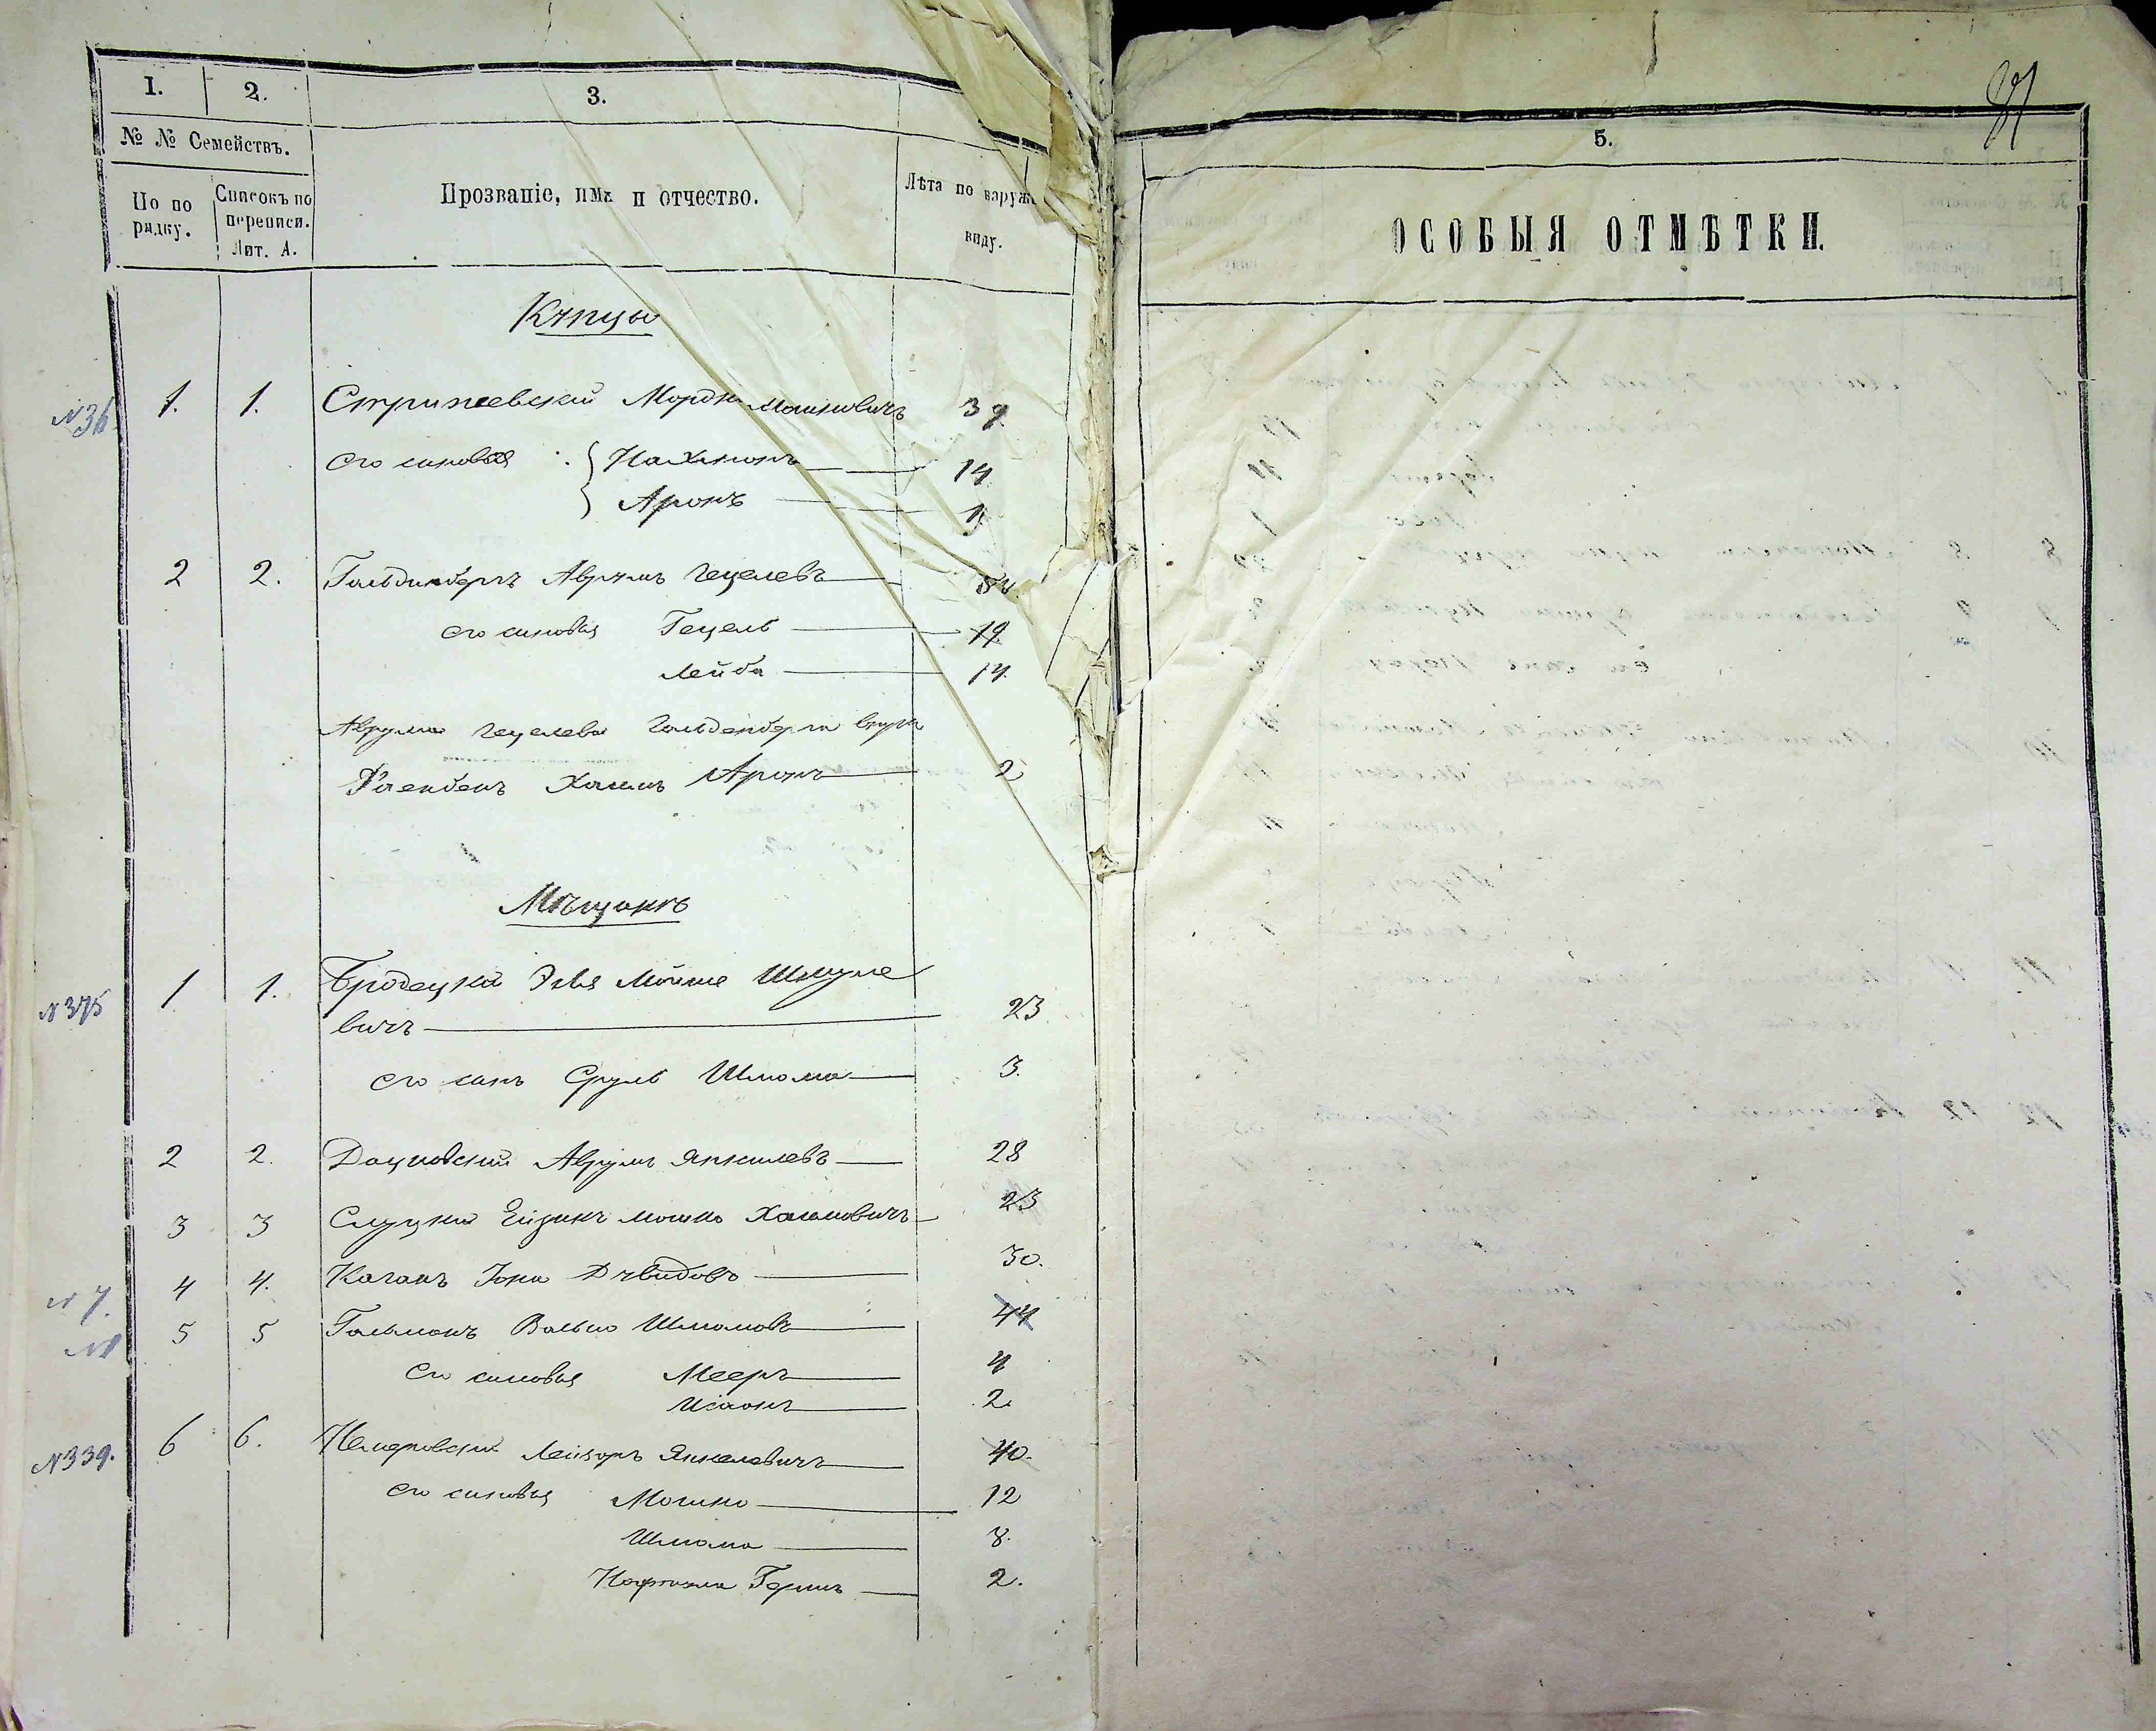 1. 2. 3.
№ № Семействъ.
По по рядку.
Списокъ по переписи. Лит. А.
Прозваніе, имя и отчество.
Лѣта по наруж виду.
Купцы
№36 1. 1. Стрижевскій Мордко Мошковичъ 39
его сыновья: Нахманъ 14
Аронъ
2 2. Гольдинбергъ Аврумъ Гецелевъ
его сыновья Гецель 19
Лейба 14.
Аврума Гецелева Гольденберга внукъ
Хаимъ Аронъ 2
Мѣщанъ
№375 1 1. Бродецкій Эля Мойше Шмуле
вичъ 23
его сынъ Сруль Шлиома 3.
2 2. Дацковскій Аврумъ Янкилевъ 28
3 3 Слуцкій Ейзикъ Мошко Хаимовичъ 23
№7. 4 4. Каганъ Іона Дувидовъ 30.
5 5 Гальманъ Волько Шлиомовъ 44
его сыновья Мееръ 4
Исаакъ 2
№339. 6 6. Немеровскій Лейзоръ Янкелевичъ 40.
его сыновья Мошко 12
Шлиома 8.
Нафтула Гершъ 2.
5.
ОСОБЫЯ ОТМѢТКИ.